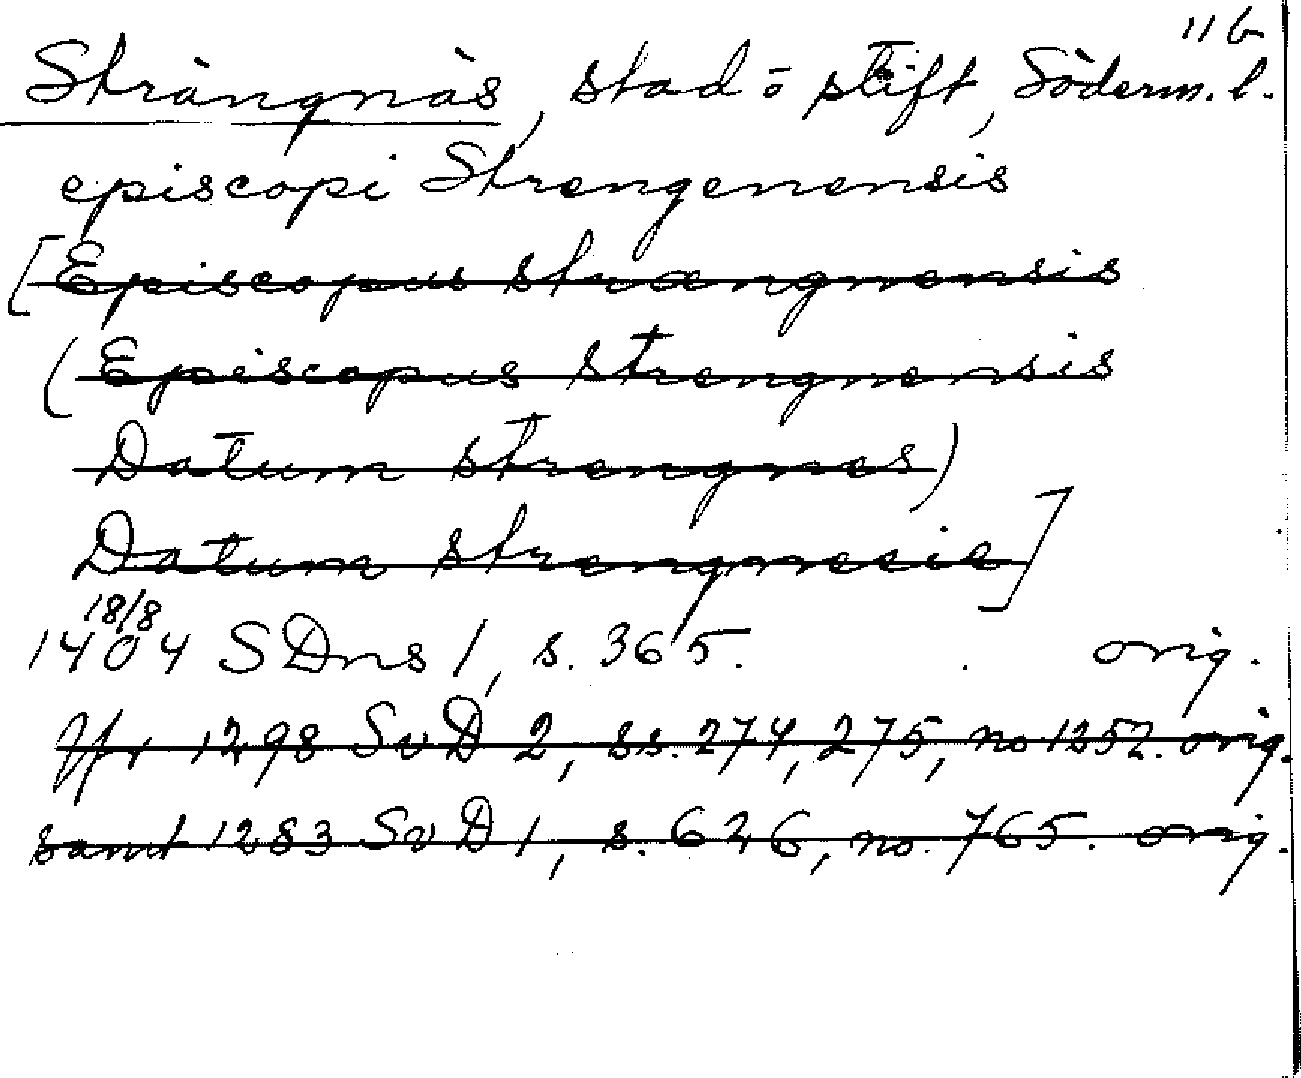 11 b
Strängnäs, stad o stift, Söderm. l.
episcopi Strengenensis
[Episcopus strængnensis
(Episcopus strengnensis
Datum strengnes)
Datum strengnecie]
18/8
1404 SDns 1, s. 365. orig.
Jfr 1298 SvD 2, ss. 274, 275, no 1252. orig.
samt 1283 SvD 1, s. 626, no. 765. orig.